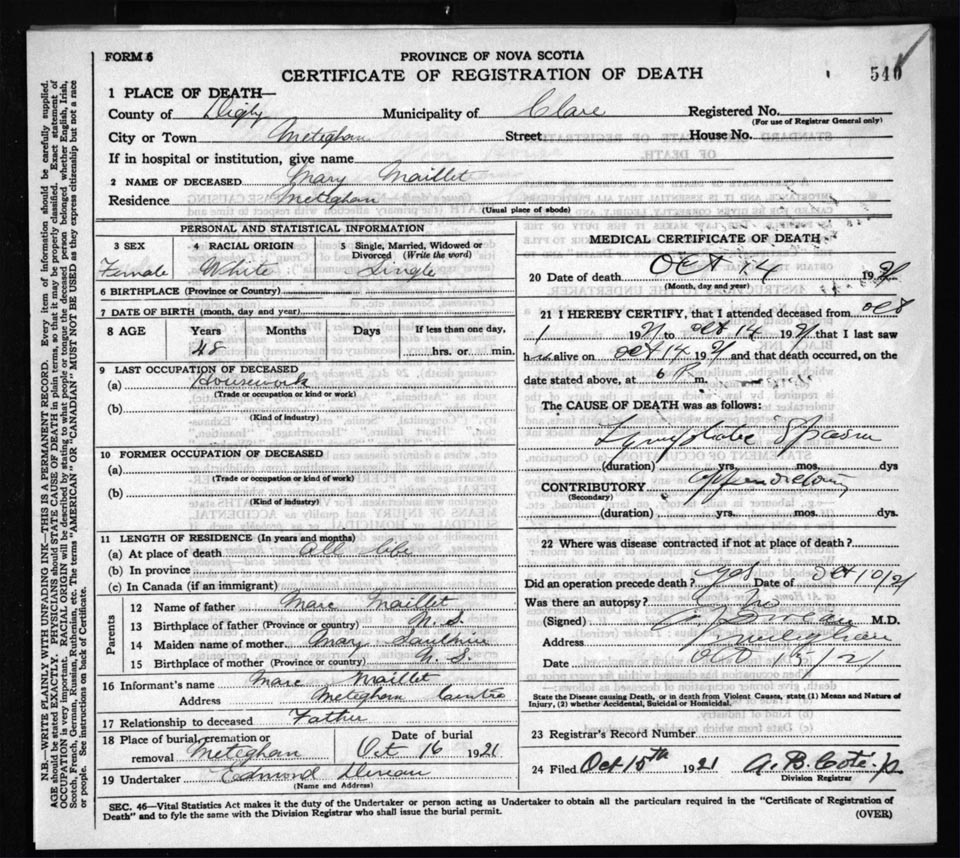 FORM 6
PROVINCE OF NOVA SCOTIA
CERTIFICATE OF REGISTRATION OF DEATH
540
1 PLACE OF DEATH—
County of Digby Municipality of Clare Registered No.
(For use of Registrar General only)
City or Town Meteghan Street House No.
If in hospital or institution, give name
2 NAME OF DECEASED Mary Maillet
Residence Meteghan
(Usual place of abode)
PERSONAL AND STATISTICAL INFORMATION
3 SEX 4 RACIAL ORIGIN 5 Single, Married, Widowed or Divorced (Write the word)
Female White Single
6 BIRTHPLACE (Province or Country)
7 DATE OF BIRTH (month, day and year)
8 AGE Years Months Days If less than one day,
48 hrs. or min.
9 LAST OCCUPATION OF DECEASED
(a) Housework
(Trade or occupation or kind or work)
(b)
(Kind of industry)
10 FORMER OCCUPATION OF DECEASED
(a)
(Trade or occupation or kind of work)
(b)
(Kind of industry)
11 LENGTH OF RESIDENCE (In years and months)
(a) At place of death all life
(b) In province
(c) In Canada (if an immigrant)
Parents
12 Name of father Marc Maillet
13 Birthplace of father (Province or country) N.S.
14 Maiden name of mother Mary
15 Birthplace of mother (Province or country) N.S.
16 Informant's name Marc Maillet
Address Meteghan Centre
17 Relationship to deceased Father
18 Place of burial, cremation or removal Meteghan Date of burial Oct 16 1921
19 Undertaker Edmond
(Name and Address)
MEDICAL CERTIFICATE OF DEATH
20 Date of death Oct 14 1921
(Month, day and year)
21 I HEREBY CERTIFY, that I attended deceased from Oct 8
1921 to Oct 14 1921 that I last saw
h alive on Oct 14 1921 and that death occurred, on the
date stated above, at 6 P m.
The CAUSE OF DEATH was as follows:
(duration) yrs. mos. dys
CONTRIBUTORY
(Secondary)
(duration) yrs. mos. dys.
22 Where was disease contracted if not at place of death?
Did an operation precede death? Yes Date of Oct 10/21
Was there an autopsy? No
(Signed) M.D.
Address Meteghan
Date Oct 15/21
State the Disease causing Death, or in death from Violent Causes, state (1) Means and Nature of Injury, (2) whether Accidental, Suicidal or Homicidal.
23 Registrar's Record Number
24 Filed Oct 15th 1921 A. B. Cote
Division Registrar
SEC. 46—Vital Statistics Act makes it the duty of the Undertaker or person acting as Undertaker to obtain all the particulars required in the "Certificate of Registration of
Death" and to fyle the same with the Division Registrar who shall issue the burial permit.
(OVER)
N.B.—WRITE PLAINLY WITH UNFADING INK—THIS IS A PERMANENT RECORD. Every item of information should be carefully supplied.
AGE should be stated EXACTLY. PHYSICIANS should STATE CAUSE OF DEATH in plain terms, so that it may be properly classified. Exact statement of
OCCUPATION is very important. RACIAL ORIGIN will be described by stating to what people or tongue the deceased person belonged whether English, Irish,
Scotch, French, German, Russian, Ruthenian, etc. The terms "AMERICAN" OR "CANADIAN" MUST NOT BE USED as they express citizenship but not a race
or people. See instructions on back of Certificate.